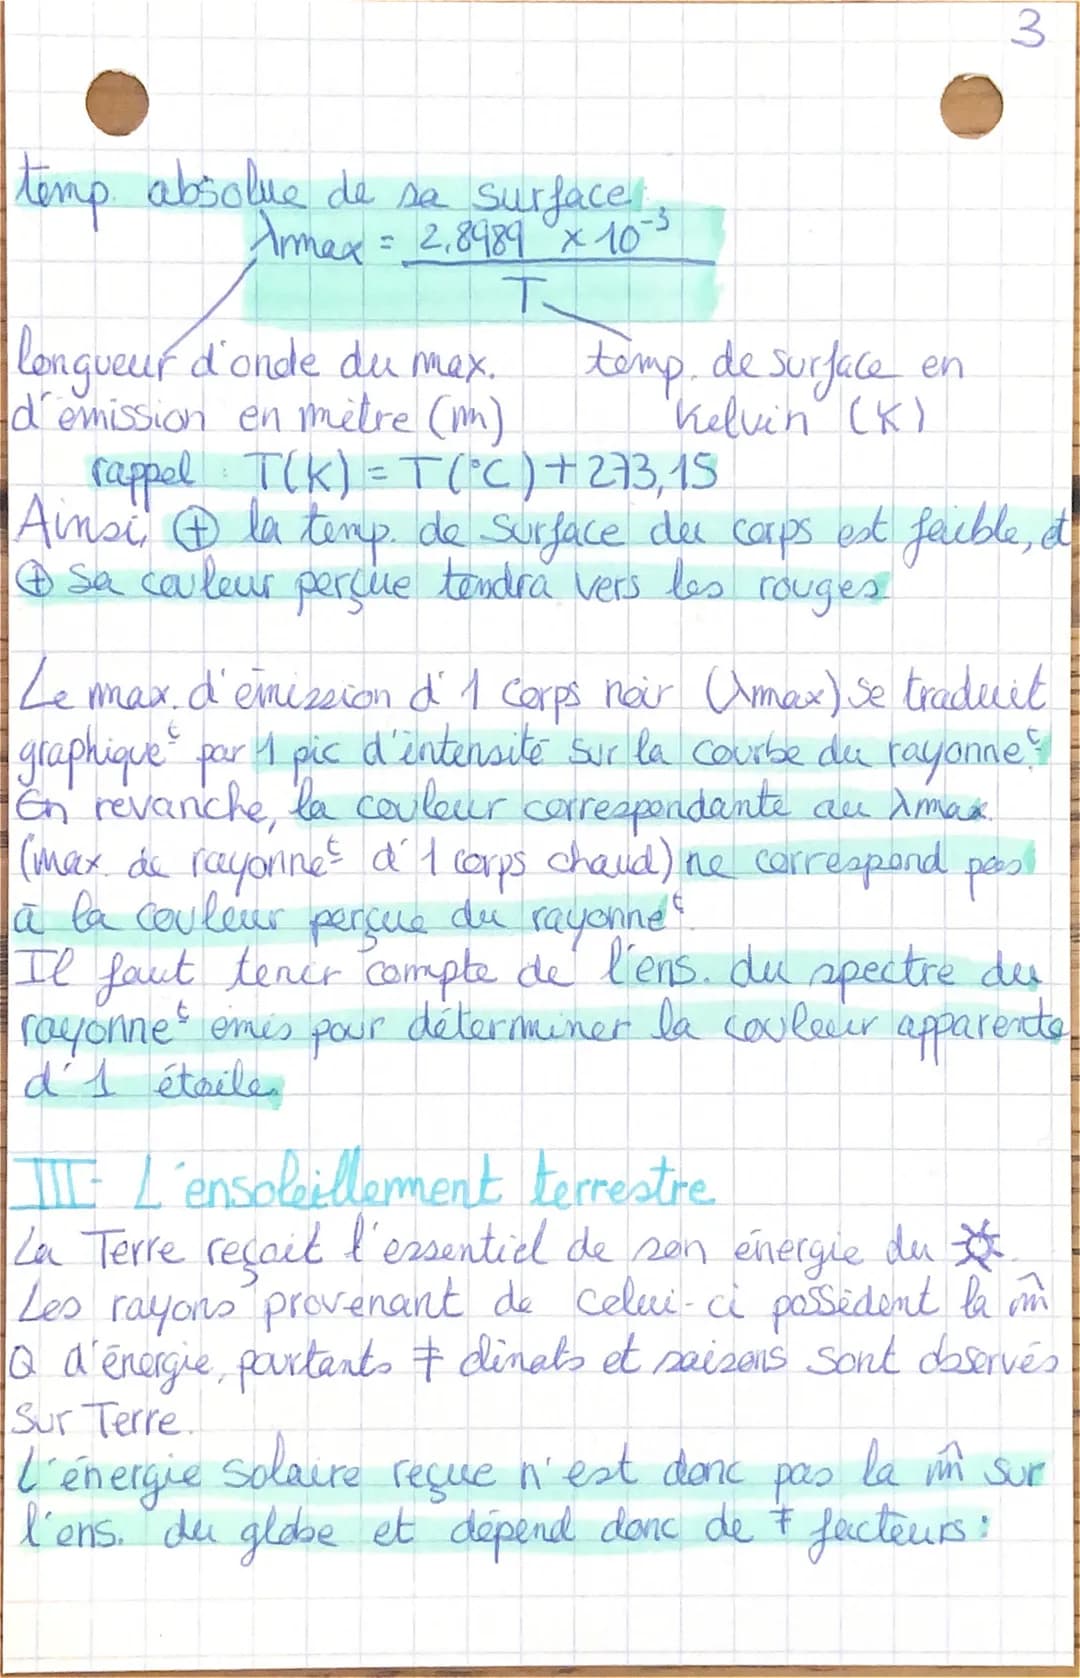 3
temp. absolue de sa surface.
λmax = 2,8989 × 10⁻³
T
longueur d'onde du max. temp. de surface en
d'émission en mètre (m) Kelvin (K)
rappel : T(K) = T(°C) + 273,15
Ainsi, ⊕ la temp. de surface du corps est faible, et
⊕ sa couleur perçue tendra vers les rouges.
Le max. d'émission d'1 corps noir (λmax) se traduit
graphiqueᵗ par 1 pic d'intensité sur la courbe du rayonneᵗ.
En revanche, la couleur correspondante au λmax
(max. de rayonneᵗ d'1 corps chaud) ne correspond pas
à la couleur perçue du rayonneᵗ.
Il faut tenir compte de l'ens. du spectre du
rayonneᵗ émis pour déterminer la couleur apparente
d'1 étoile.
III- L'ensoleillement terrestre
La Terre reçoit l'essentiel de son énergie du ☼.
Les rayons provenant de celui-ci possèdent la m̂
Q d'énergie, pourtants ≠ climats et saisons sont observés
sur Terre.
L'énergie solaire reçue n'est donc pas la m̂ sur
l'ens. du globe et dépend donc de ≠ facteurs :